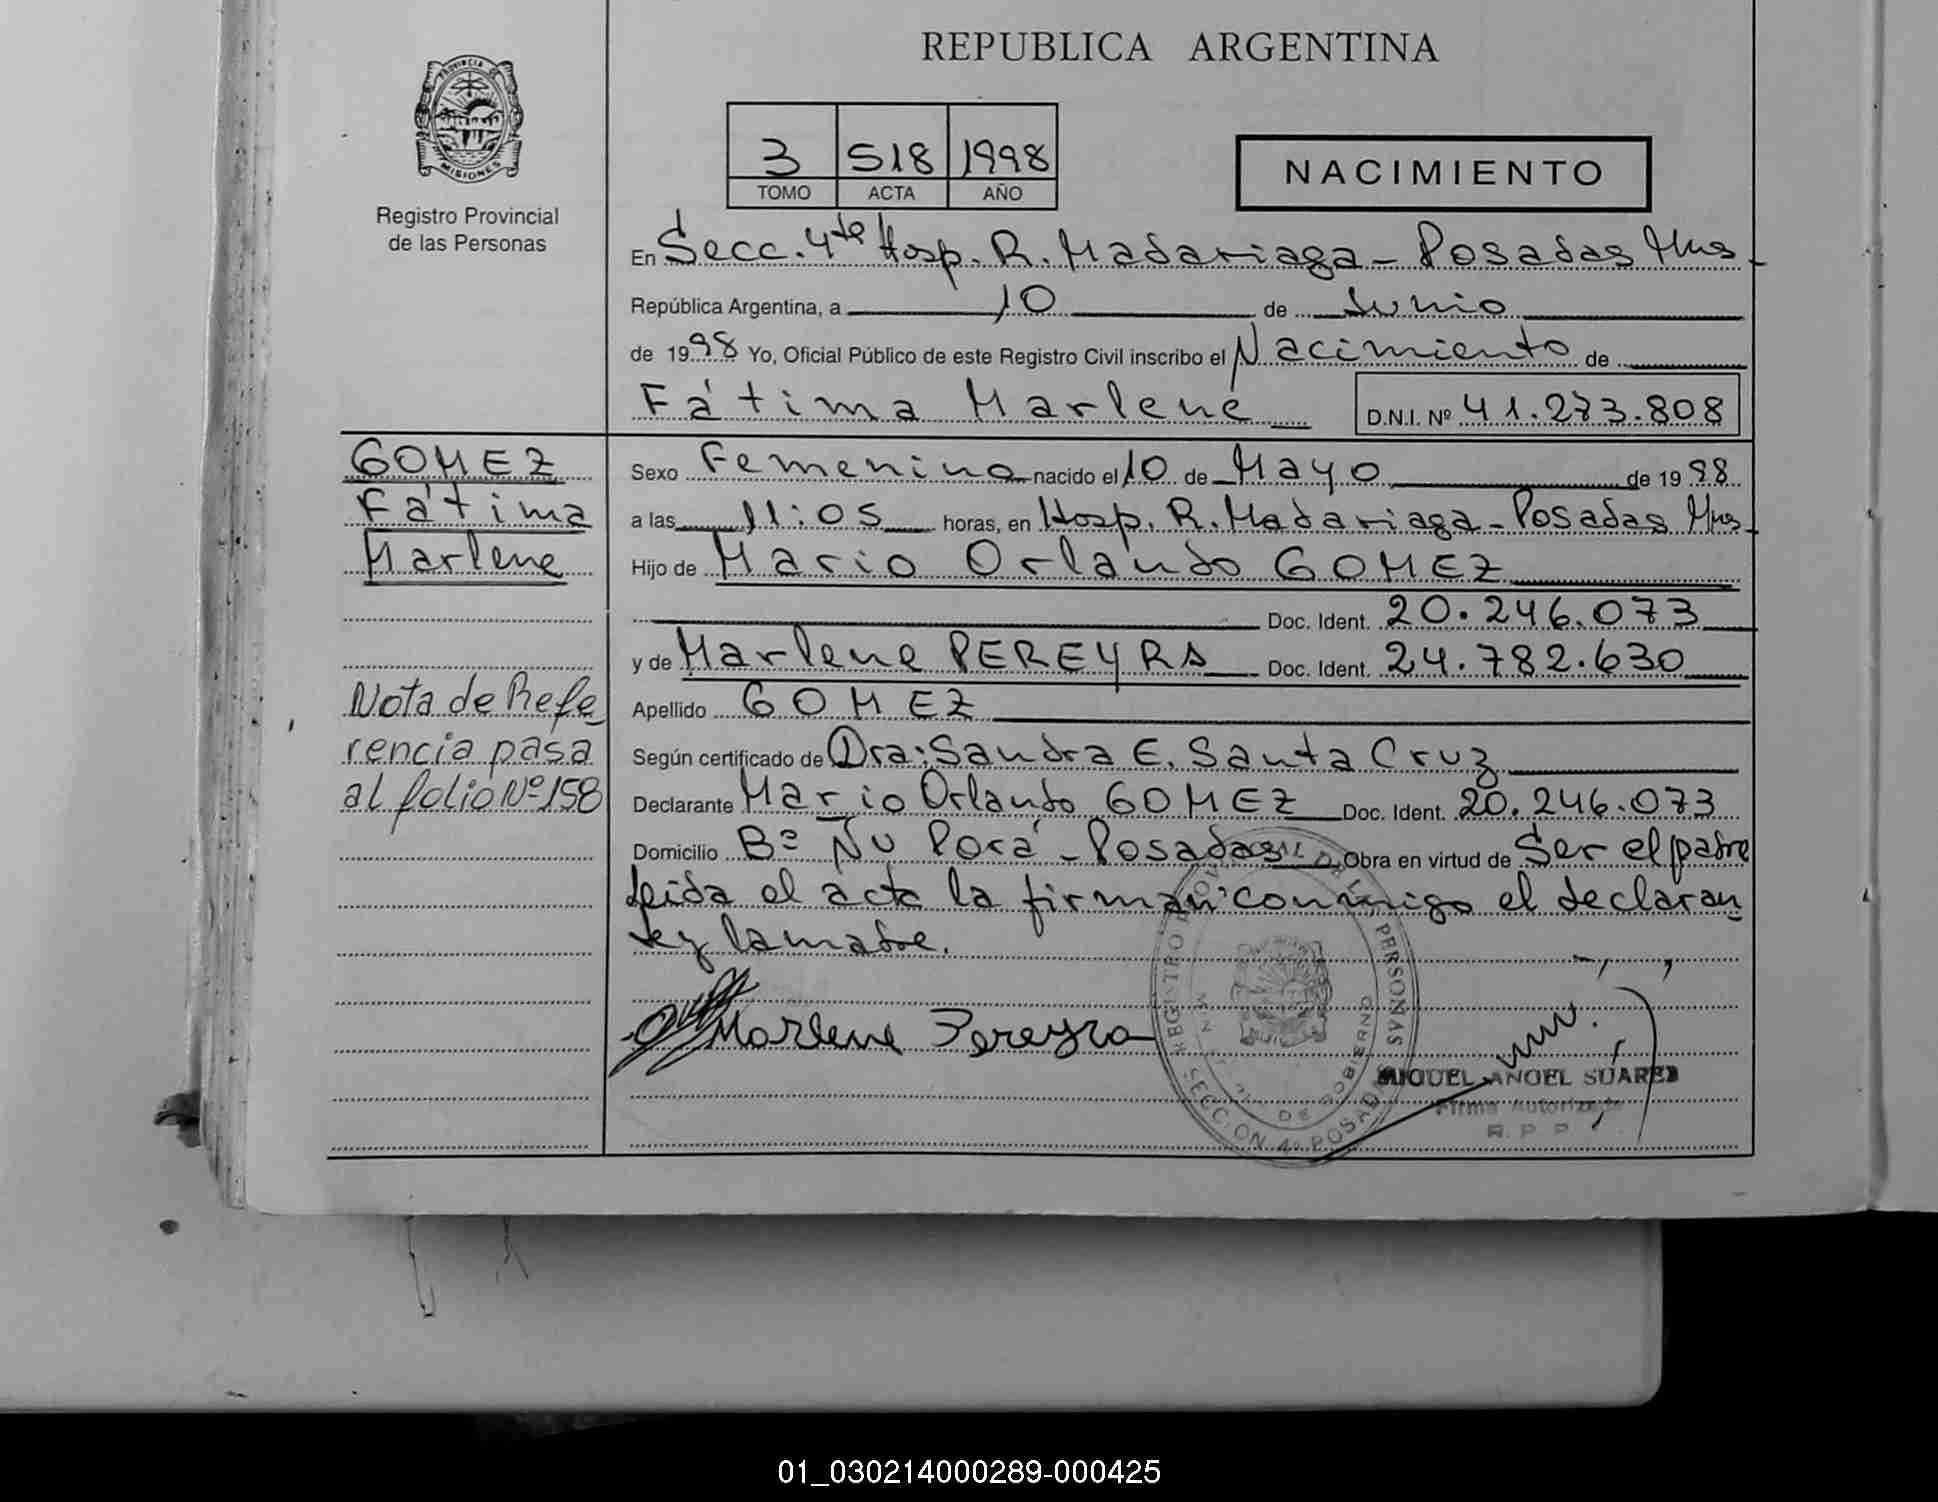 REPUBLICA ARGENTINA
PROVINCIA DE
MISIONES
Registro Provincial
de las Personas
3 518 1998
TOMO ACTA AÑO
NACIMIENTO
En Secc. 4ta Hosp. R. Madariaga - Posadas Mns
República Argentina, a 10 de Junio
de 1998 Yo, Oficial Público de este Registro Civil inscribo el Nacimiento de
Fátima Marlene D.N.I. Nº 41.273.808
GOMEZ
Fátima
Marlene
Sexo Femenino nacido el 10 de Mayo de 1998
a las 11:05 horas, en Hosp. R. Madariaga - Posadas Mns
Hijo de Mario Orlando GOMEZ
Doc. Ident. 20.246.073
y de Marlene PEREYRA Doc. Ident. 24.782.630
Nota de Refe
rencia pasa
al folio Nº 158
Apellido GOMEZ
Según certificado de Dra: Sandra E. Santa Cruz
Declarante Mario Orlando GOMEZ Doc. Ident. 20.246.073
Domicilio Bº Ñu Porá - Posadas Obra en virtud de Ser el padre
leida el acta la firman conmigo el declaran
te y la madre.
Marlene Pereyra
REGISTRO PROVINCIAL DE LAS PERSONAS
DE GOBIERNO
SECCION 4º POSADAS
MIGUEL ANGEL SUAREZ
Firma Autorizada
R. P. P
01_030214000289-000425